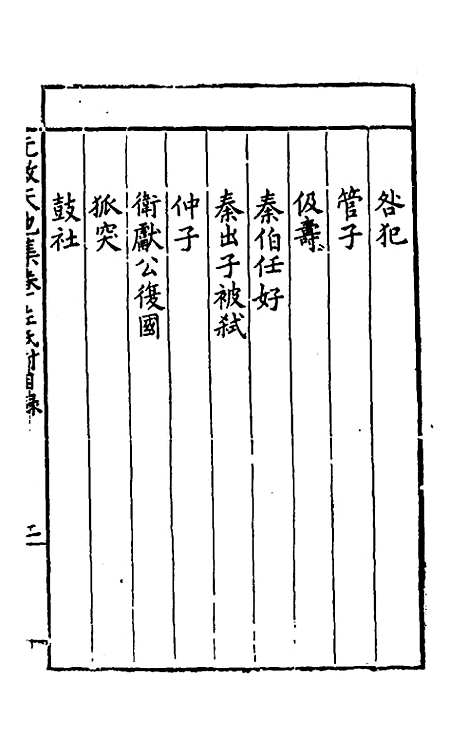 咎犯
管子
伋壽
秦伯任好
秦出子被弑
仲子
衛獻公復國
狐突
鼓社
天地集卷一左氏討目錄
二